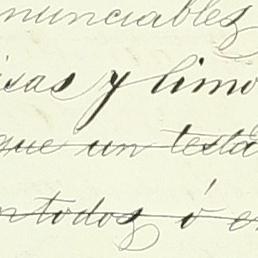 nunciables
isas y limo
que un testa
ntodos ó en